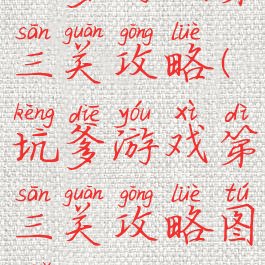 sān guān gōng lüè
三关攻略(
kēng diē yóu xì dì
坑爹游戏第
sān guān gōng lüè tú
三关攻略图